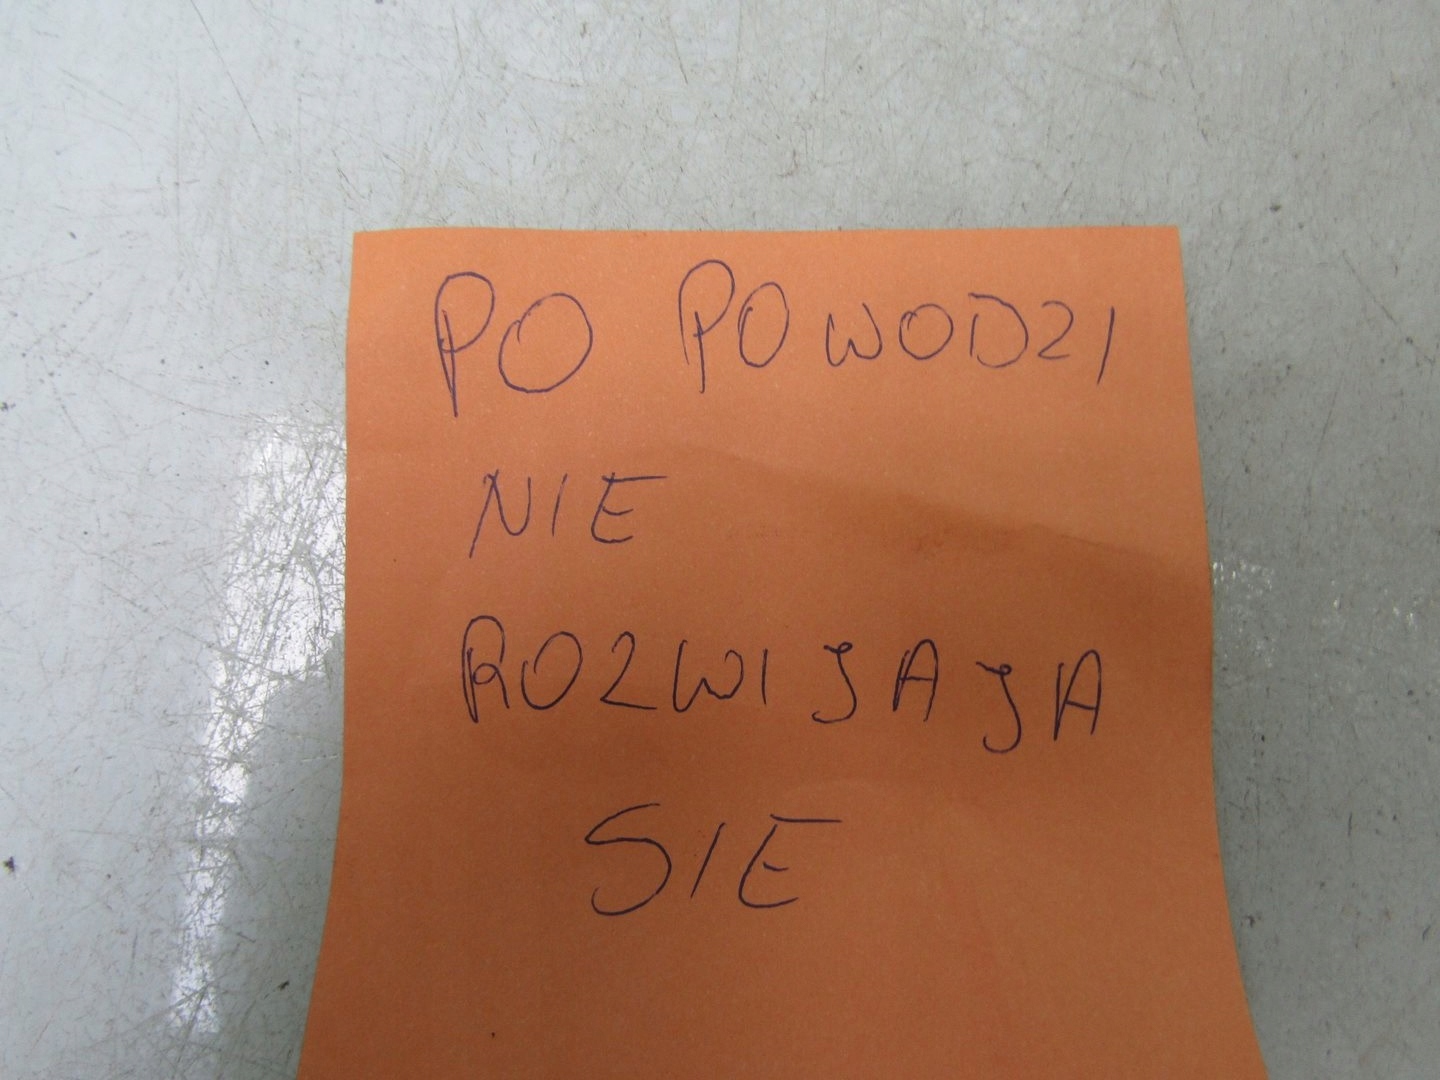 PO POWODZI
NIE
ROZWIJAJA
SIE